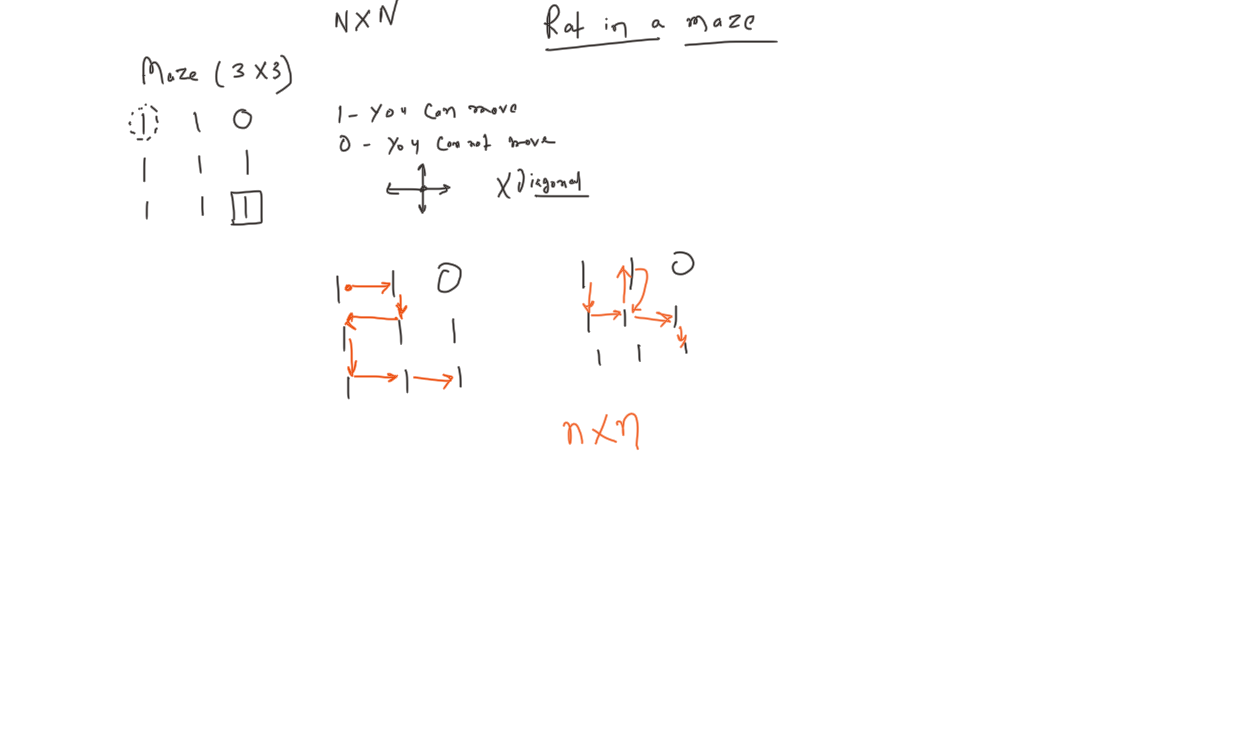 N X N
Rat in a maze
Maze ( 3 X 3 )
1 1 0
1 1 1
1 1 1
1 - You can move
0 - You can not move
X Diagonal
1 1 0
1 1 1
1 1 1
1 1 0
1 1 1
1 1 1
n X n